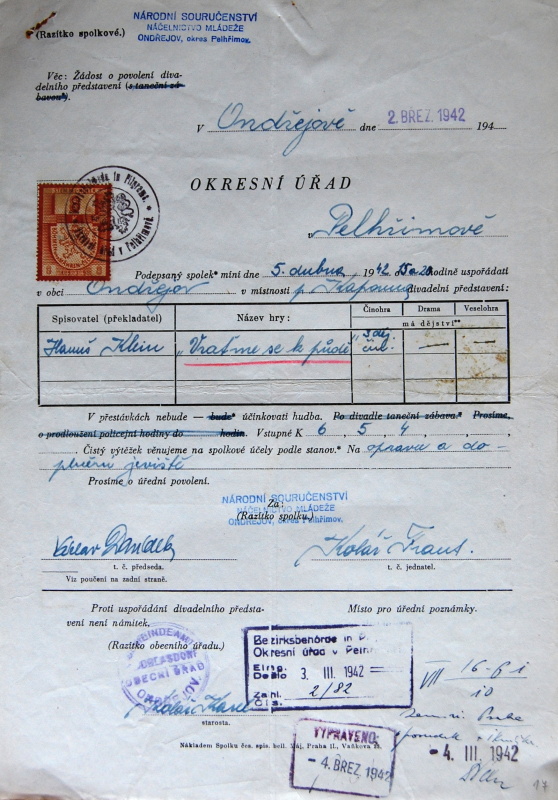 NÁRODNÍ SOURUČENSTVÍ
NÁČELNICTVO MLÁDEŽE
ONDŘEJOV, okres Pelhřimov.
(Razítko spolkové.)
Věc: Žádost o povolení diva-
delního představení (s taneční zá-
bavou*).
V Ondřejově dne 2. BŘEZ. 1942 194
OKRESNÍ ÚŘAD
v Pelhřimově
Podepsaný spolek* míní dne 5. dubna 1942 15 a 20 hodině uspořádati
v obci Ondřejov v místnosti p. divadelní představení:
Spisovatel (překladatel) Název hry: Činohra Drama Veselohra
má dějství**
Hanuš Klein „Vraťme se k půdě" 3 děj. čin. — —
V přestávkách nebude — bude* účinkovati hudba. Po divadle taneční zábava.* Prosíme,
o prodloužení policejní hodiny do hodin. Vstupné K 6, 5, 4, , ,
, . Čistý výtěžek věnujeme na spolkové účely podle stanov.* Na opravu a do-
plnění jeviště
Prosíme o úřední povolení.
NÁRODNÍ SOURUČENSTVÍ
NÁČELNICTVO MLÁDEŽE
ONDŘEJOV, okres Pelhřimov.
Za:
(Razítko spolku:)
Václav Kolář Frant.
t. č. předseda. t. č. jednatel.
Viz poučení na zadní straně.
Proti uspořádání divadelního předsta-
vení není námitek.
Místo pro úřední poznámky.
(Razítko obecního úřadu.)
OBECNÍ ÚŘAD
Bezirksbehörde in P
Okresní úřad v Pelh
Eing.
Došlo 3. III. 1942
Zahl.
Čís. 2/82
VII 16-61
10
Kolář Karel
starosta.
Nákladem Spolku čsa. spis. bell. Máj, Praha II., Vaňkova
VYPRAVENO:
- 4. BŘEZ. 1942
- 4. III. 1942
17